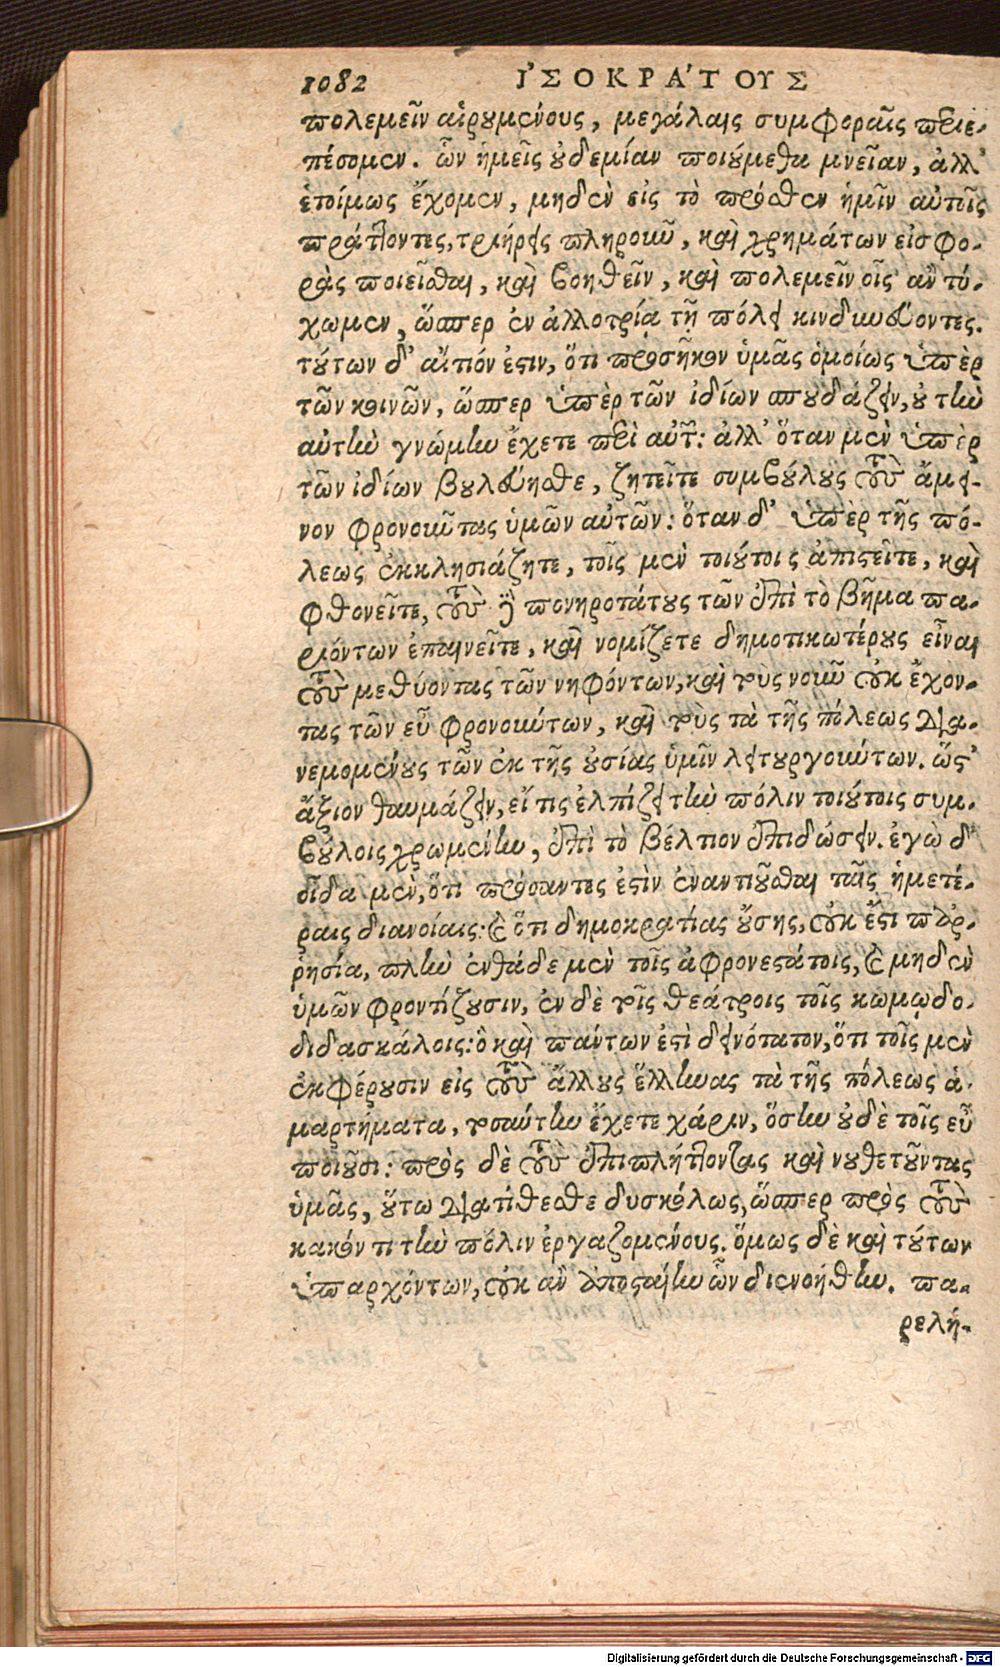 1082 ἸΣΟΚΡΆΤΟΥΣ
πολεμεῖν αἱρουμένους, μεγάλαις συμφοραῖς περιε-
πέσομεν. ὧν ἡμεῖς οὐδεμίαν ποιούμεθα μνείαν, ἀλλ'
ἑτοίμως ἔχομεν, μηδὲν εἰς τὸ πρόσθεν ἡμῖν αὐτοῖς
πράττοντες, τριήρεις πληροῦν, καὶ χρημάτων εἰσφο-
ρὰς ποιεῖσθαι, καὶ βοηθεῖν, καὶ πολεμεῖν οἷς ἂν τύ-
χωμεν, ὥσπερ ἐν ἀλλοτρίᾳ τῇ πόλει κινδυνεύοντες.
τούτων δ' αἴτιόν ἐστιν, ὅτι προσῆκον ὑμᾶς ὁμοίως ὑπὲρ
τῶν κοινῶν, ὥσπερ ὑπὲρ τῶν ἰδίων σπουδάζειν, οὐ τὴν
αὐτὴν γνώμην ἔχετε περὶ αὐτῶν: ἀλλ' ὅταν μὲν ὑπὲρ
τῶν ἰδίων βουλεύησθε, ζητεῖτε συμβούλους τοὺς ἄμει-
νον φρονοῦντας ὑμῶν αὐτῶν: ὅταν δ' ὑπὲρ τῆς πό-
λεως ἐκκλησιάζητε, τοῖς μὲν τοιούτοις ἀπιστεῖτε, καὶ
φθονεῖτε, τοὺς δὲ πονηροτάτους τῶν ἐπὶ τὸ βῆμα πα-
ριόντων ἐπαινεῖτε, καὶ νομίζετε δημοτικωτέρους εἶναι
τοὺς μεθύοντας τῶν νηφόντων, καὶ τοὺς νοῦν οὐκ ἔχον-
τας τῶν εὖ φρονούντων, καὶ τοὺς τὰ τῆς πόλεως δια-
νεμομένους τῶν ἐκ τῆς οὐσίας ὑμῖν λειτουργούντων. ὥστ'
ἄξιον θαυμάζειν, εἴ τις ἐλπίζει τὴν πόλιν τοιούτοις συμ-
βούλοις χρωμένην, ἐπὶ τὸ βέλτιον ἐπιδώσειν. ἐγὼ δ'
οἶδα μὲν, ὅτι πρόσαντές ἐστὶν ἐναντιοῦσθαι ταῖς ἡμετέ-
ραις διανοίαις: καὶ ὅτι δημοκρατίας οὔσης, οὐκ ἔστι παρ-
ρησία, πλὴν ἐνθάδε μὲν τοῖς ἀφρονεστάτοις, καὶ μηδὲν
ὑμῶν φροντίζουσιν, ἐν δὲ τοῖς θεάτροις τοῖς κωμῳδο-
διδασκάλοις: ὃ καὶ πάντων ἐστὶ δεινότατον, ὅτι τοῖς μὲν
ἐκφέρουσιν εἰς τοὺς ἄλλους ἕλληνας τὰ τῆς πόλεως ἁ-
μαρτήματα, τοσαύτην ἔχετε χάριν, ὅσην οὐδὲ τοῖς εὖ
ποιοῦσι: πρὸς δὲ τοὺς ἐπιπλήττοντας καὶ νουθετοῦντας
ὑμᾶς, οὕτω διατίθεσθε δυσκόλως, ὥσπερ πρὸς τοὺς
κακόν τι τὴν πόλιν ἐργαζομένους. ὅμως δὲ καὶ τούτων
ὑπαρχόντων, οὐκ ἂν ἀποσταίην ὧν διενοήθην. πα-
ρελή-
Digitalisierung gefördert durch die Deutsche Forschungsgemeinschaft - DFG